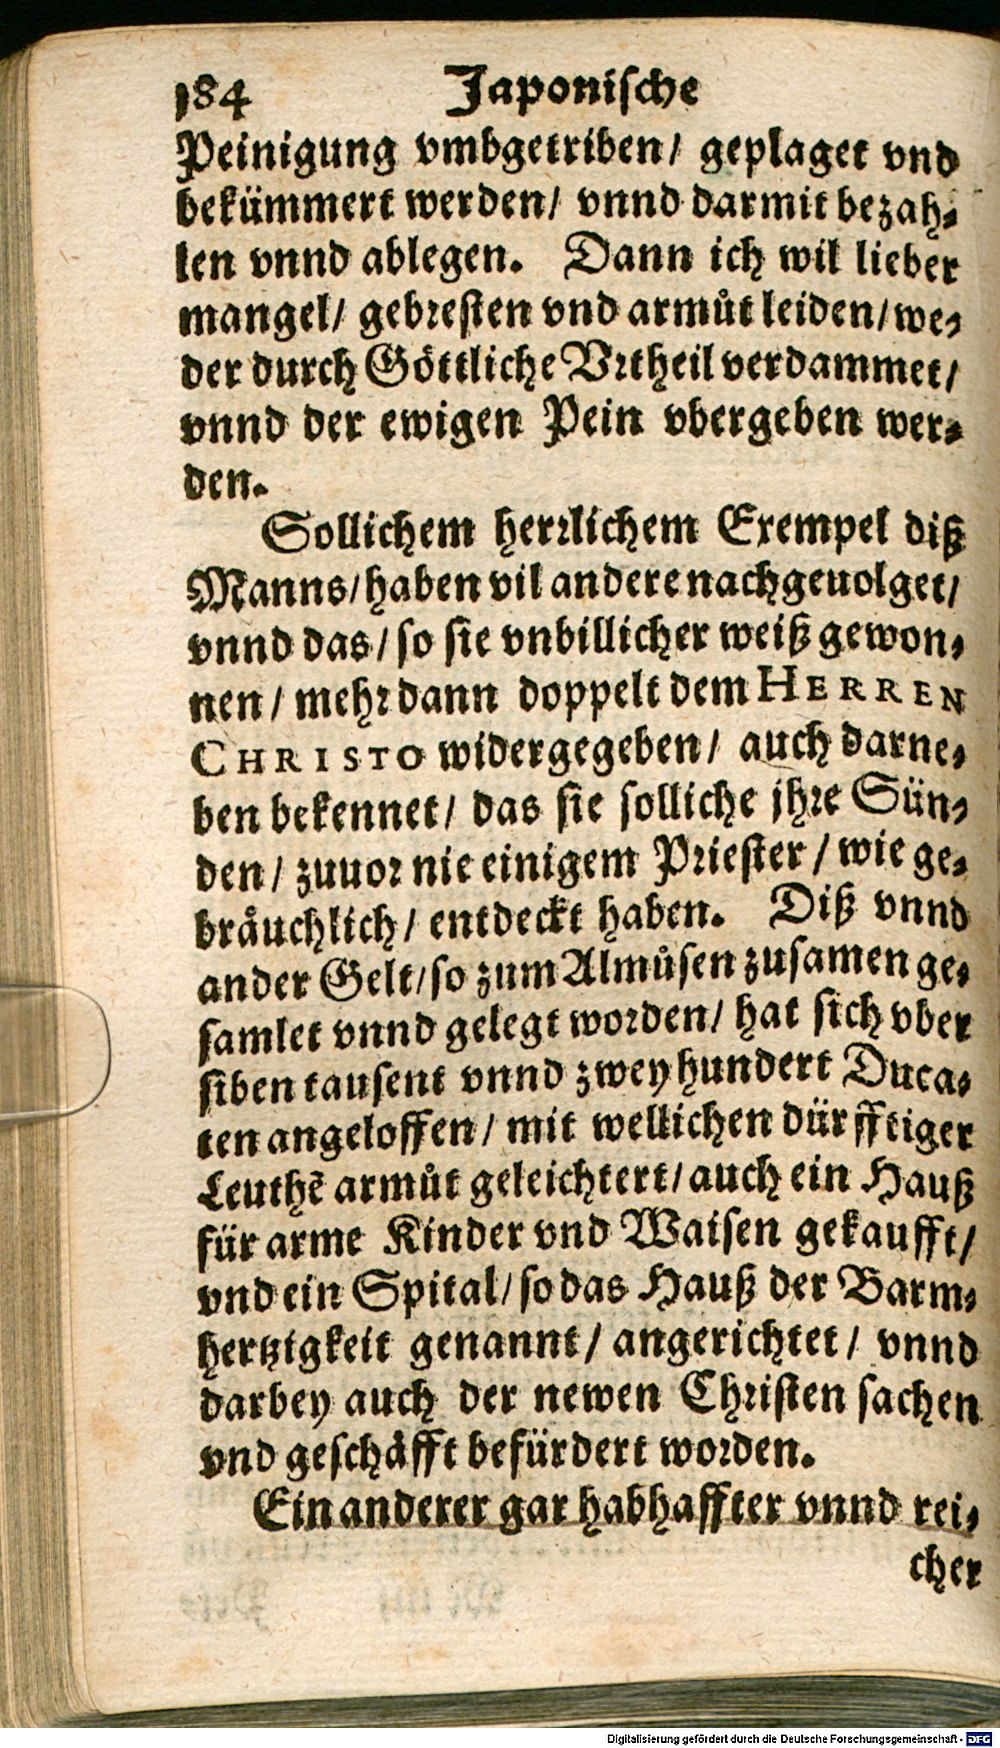 184 Japonische
Peinigung vmbgetriben/ geplaget vnd
bekümmert werden/ vnnd darmit bezah-
len vnnd ablegen. Dann ich wil lieber
mangel/ gebresten vnd armůt leiden/ we-
der durch Göttliche Vrtheil verdammet/
vnnd der ewigen Pein vbergeben wer-
den.
Sollichem herrlichem Exempel diß
Manns/ haben vil andere nachgeuolget/
vnnd das/ so sie vnbillicher weiß gewon-
nen/ mehr dann doppelt dem HERREN
CHRISTO widergegeben/ auch darne-
ben bekennet/ das sie solliche jhre Sün-
den/ zuuor nie einigem Priester/ wie ge-
bräuchlich/ entdeckt haben. Diß vnnd
ander Gelt/ so zum Almůsen zusamen ge-
samlet vnnd gelegt worden/ hat sich vber
siben tausent vnnd zwey hundert Duca-
ten angeloffen/ mit wellichen dürfftiger
Leuthẽ armůt geleichtert/ auch ein Hauß
für arme Kinder vnd Waisen gekaufft/
vnd ein Spital/ so das Hauß der Barm-
hertzigkeit genannt/ angerichtet/ vnnd
darbey auch der newen Christen sachen
vnd geschäfft befürdert worden.
Ein anderer gar habhaffter vnnd rei-
cher
Digitalisierung gefördert durch die Deutsche Forschungsgemeinschaft - DFG